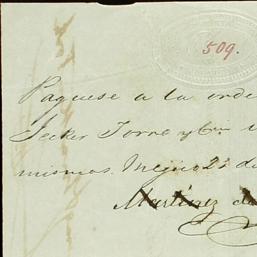 509.
Paguese a la orde
Jecker Torre y Cia
mismos. Mejico 2 de
Martinez de